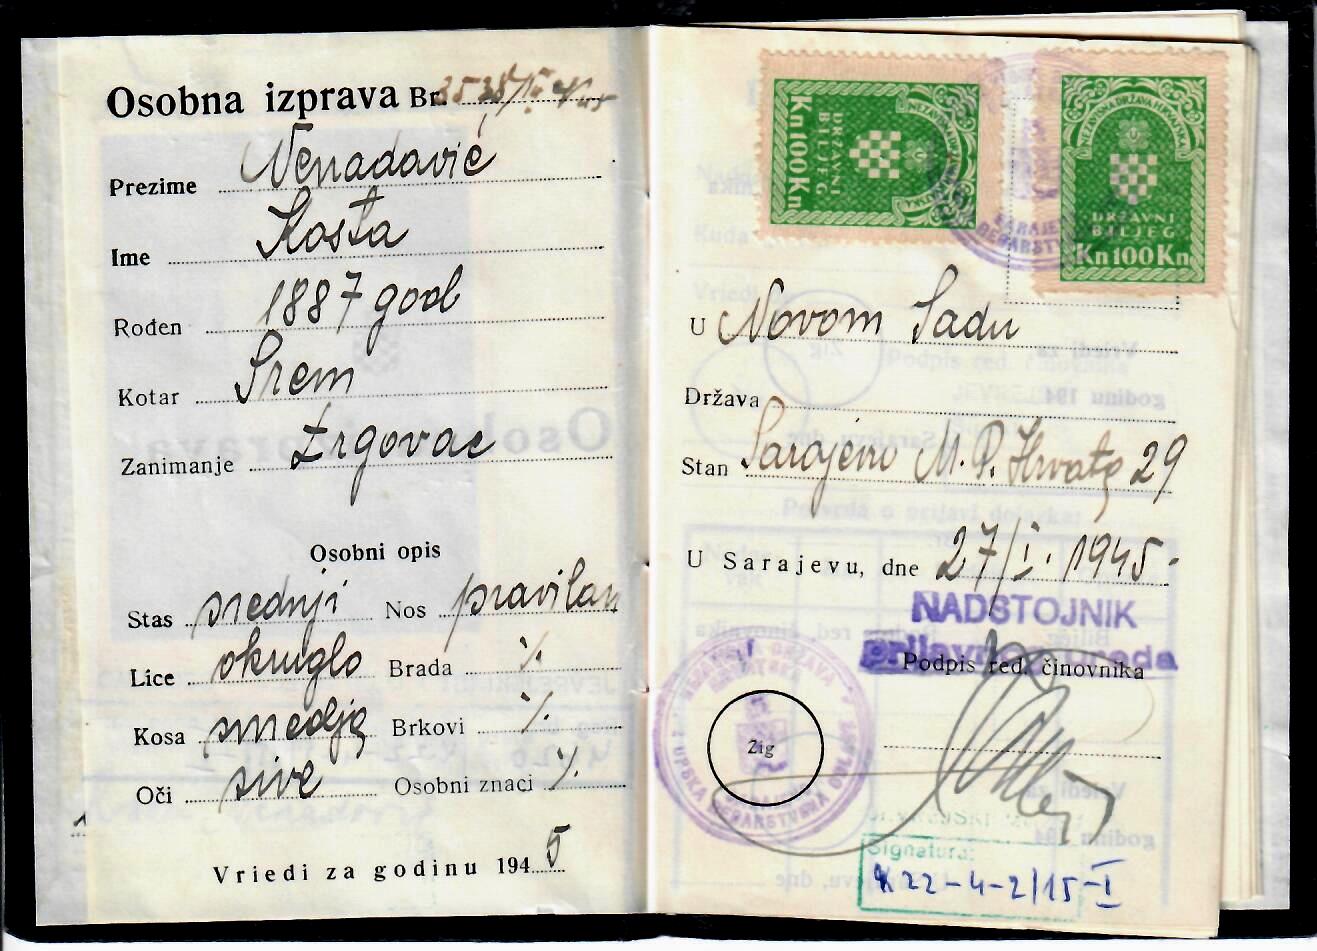 Osobna izprava Br.
Prezime Nenadović
Ime Kosta
Rođen 1887 god
Kotar Srem
Zanimanje Trgovac
Osobni opis
Stas srednji Nos pravilan
Lice okruglo Brada %
Kosa smedja Brkovi %
Oči sive Osobni znaci %
Vriedi za godinu 1945
NEZAVISNA DRŽAVA HRVATSKA
DRŽAVNI
BILJEG
Kn100Kn
NEZAVISNA DRŽAVA HRVATSKA
DRŽAVNI
BILJEG
Kn100Kn
U Novom Sadu
Država
Stan Sarajevo M. P. Hrvata 29
U Sarajevu, dne 27/I. 1945.
NADSTOJNIK
prijavnog ureda
Podpis red. činovnika
Žig
Signatura:
K22-4-2/15-I